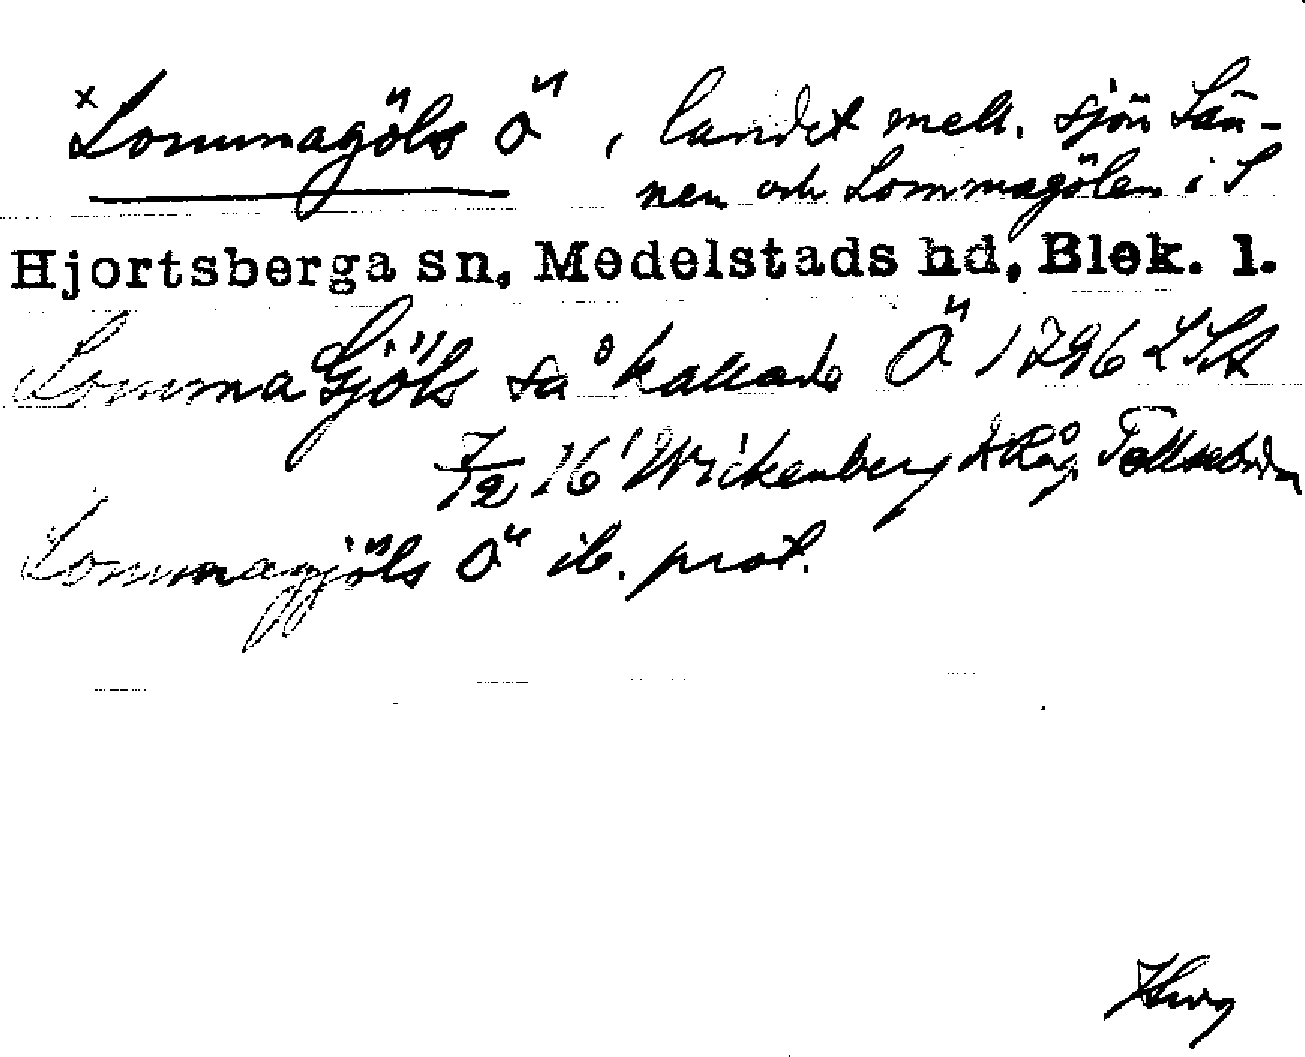 x Lommagöls Ö, landet mell. sjön Sän-
nen och Lommagölen i S
Hjortsberga sn, Medelstads hd, Blek. l.
Lomma Gjöls så kallade Ö 1796 LSA
7/2 16 Wickenberg
Lommagjöls Ö ib. prot.